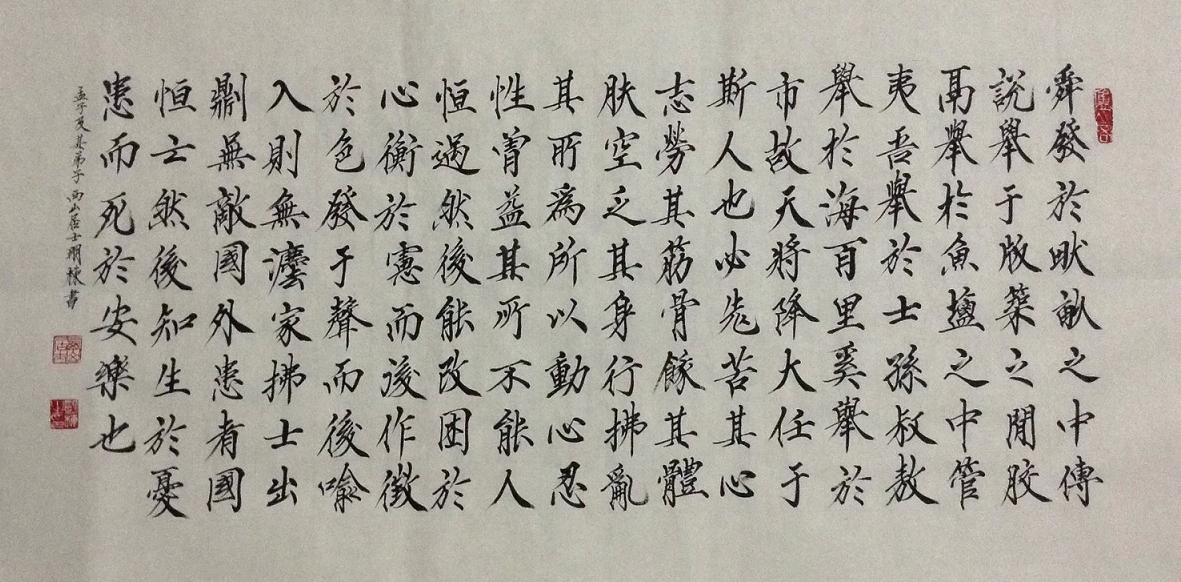 舜發於畎畝之中傅
說舉于版築之閒膠
鬲舉於魚鹽之中管
夷吾舉於士孫叔敖
舉於海百里奚舉於
市故天將降大任于
斯人也必先苦其心
志勞其筋骨餓其體
肤空乏其身行拂亂
其所爲所以動心忍
性曾益其所不能人
恒過然後能改困於
心衡於慮而後作徵
於色發于聲而後喻
入則無灋家拂士出
則無敵國外患者國
恒亡然後知生於憂
患而死於安樂也
孟子及其弟子 西山居士翔棟書